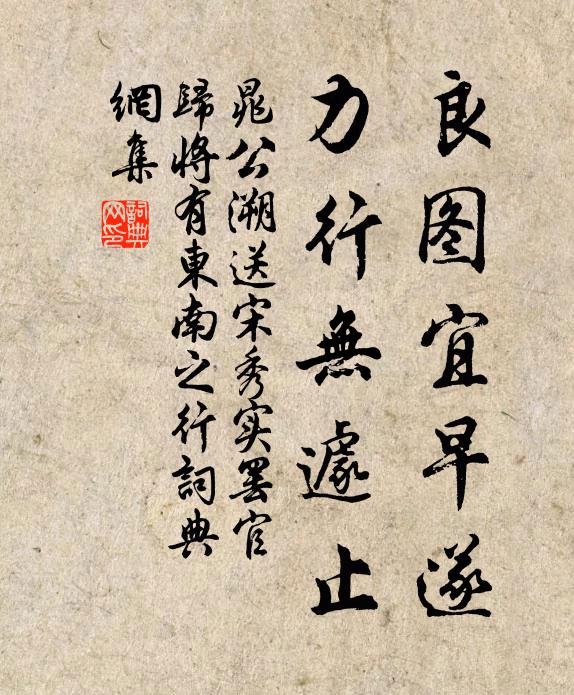 良图宜早遂
力行無遽止
晁公溯送宋秀实罢官
歸將有東南之行詞典
網集
詞典网印